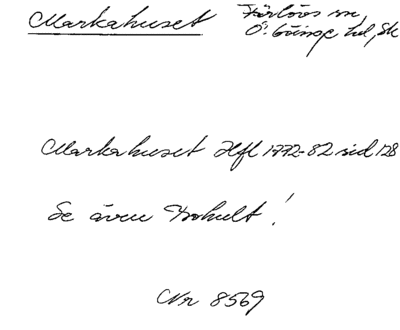 Markahuset Färlövs sn,
Ö. Göinge hd, Sk
Markahuset Hfl 1772-82 sid 128
Se även !
Nr 8569